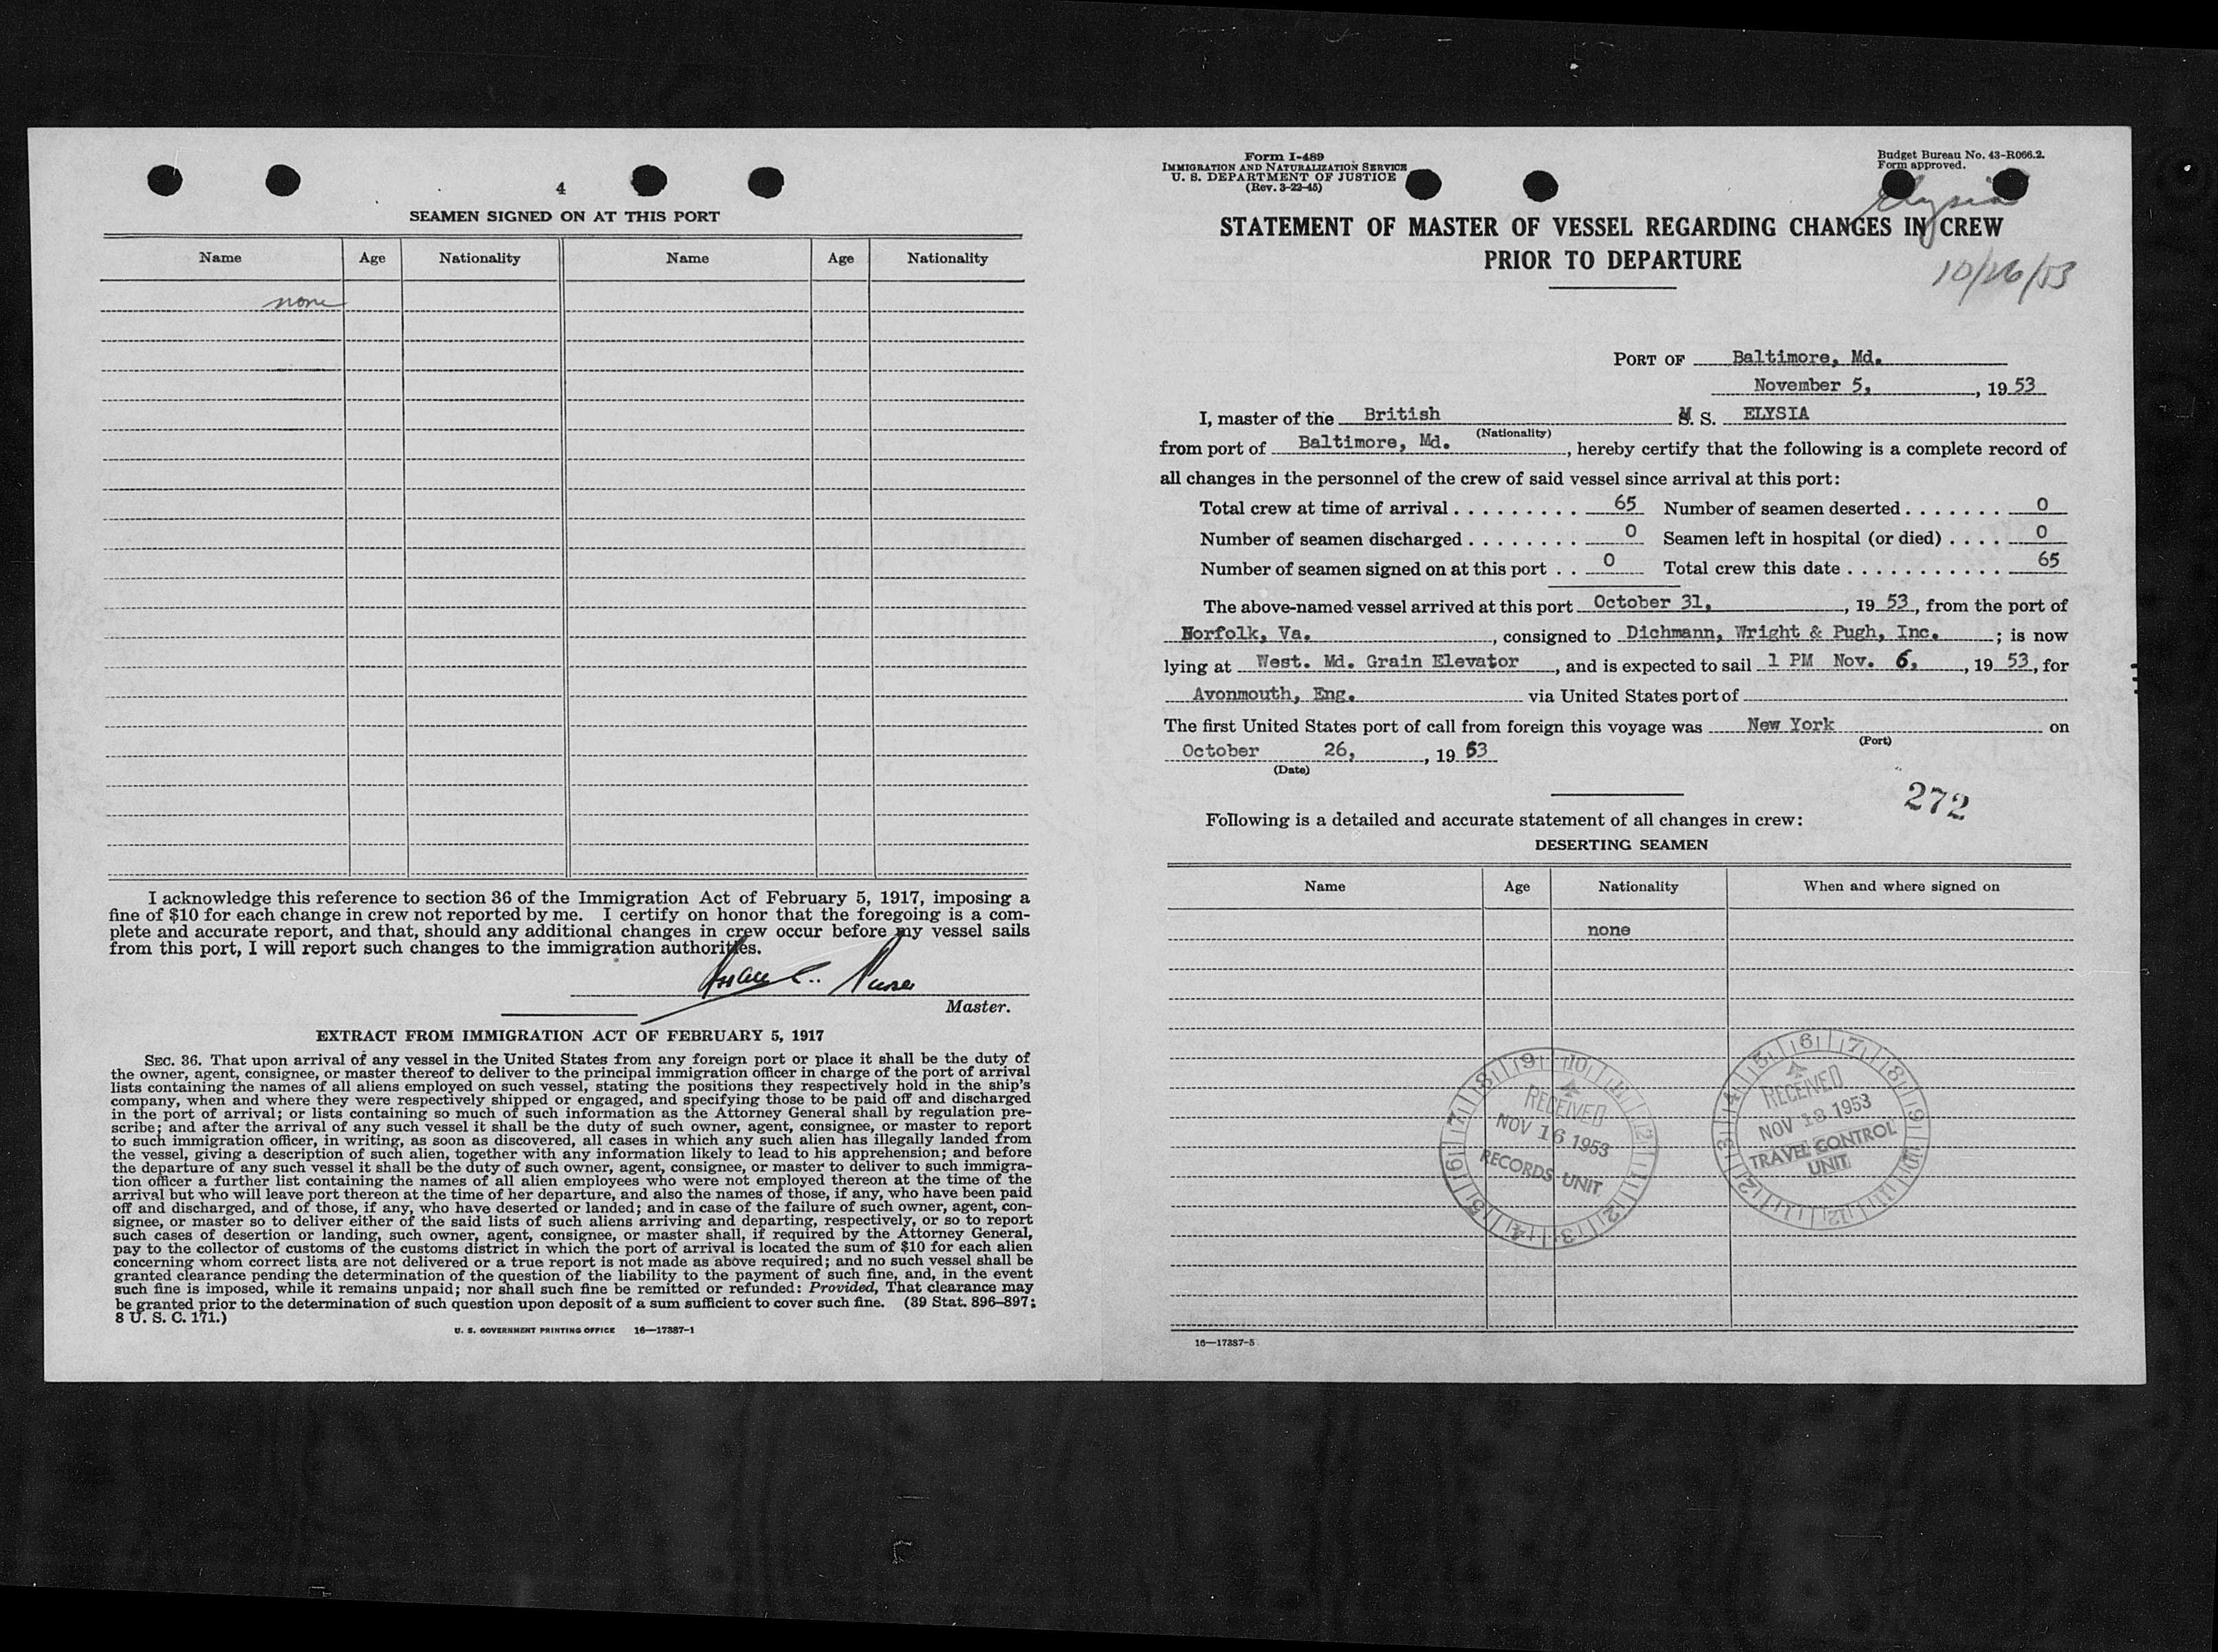 4
SEAMEN SIGNED ON AT THIS PORT
Name Age Nationality Name Age Nationality
none
I acknowledge this reference to section 36 of the Immigration Act of February 5, 1917, imposing a
fine of $10 for each change in crew not reported by me. I certify on honor that the foregoing is a com-
plete and accurate report, and that, should any additional changes in crew occur before my vessel sails
from this port, I will report such changes to the immigration authorities.
Master.
EXTRACT FROM IMMIGRATION ACT OF FEBRUARY 5, 1917
SEC. 36. That upon arrival of any vessel in the United States from any foreign port or place it shall be the duty of
the owner, agent, consignee, or master thereof to deliver to the principal immigration officer in charge of the port of arrival
lists containing the names of all aliens employed on such vessel, stating the positions they respectively hold in the ship's
company, when and where they were respectively shipped or engaged, and specifying those to be paid off and discharged
in the port of arrival; or lists containing so much of such information as the Attorney General shall by regulation pre-
scribe; and after the arrival of any such vessel it shall be the duty of such owner, agent, consignee, or master to report
to such immigration officer, in writing, as soon as discovered, all cases in which any such alien has illegally landed from
the vessel, giving a description of such alien, together with any information likely to lead to his apprehension; and before
the departure of any such vessel it shall be the duty of such owner, agent, consignee, or master to deliver to such immigra-
tion officer a further list containing the names of all alien employees who were not employed thereon at the time of the
arrival but who will leave port thereon at the time of her departure, and also the names of those, if any, who have been paid
off and discharged, and of those, if any, who have deserted or landed; and in case of the failure of such owner, agent, con-
signee, or master so to deliver either of the said lists of such aliens arriving and departing, respectively, or so to report
such cases of desertion or landing, such owner, agent, consignee, or master shall, if required by the Attorney General,
pay to the collector of customs of the customs district in which the port of arrival is located the sum of $10 for each alien
concerning whom correct lists are not delivered or a true report is not made as above required; and no such vessel shall be
granted clearance pending the determination of the question of the liability to the payment of such fine, and, in the event
such fine is imposed, while it remains unpaid; nor shall such fine be remitted or refunded: Provided, That clearance may
be granted prior to the determination of such question upon deposit of a sum sufficient to cover such fine. (39 Stat. 896–897;
8 U. S. C. 171.)
U. S. GOVERNMENT PRINTING OFFICE 16—17387-1
Form I-489
IMMIGRATION AND NATURALIZATION SERVICE
U. S. DEPARTMENT OF JUSTICE
(Rev. 3-22-45)
Budget Bureau No. 43-R066.2.
Form approved.
Elysia
STATEMENT OF MASTER OF VESSEL REGARDING CHANGES IN CREW
PRIOR TO DEPARTURE
10/26/53
PORT OF Baltimore, Md.
November 5, , 19 53
I, master of the British M. S. ELYSIA
(Nationality)
from port of Baltimore, Md. , hereby certify that the following is a complete record of
all changes in the personnel of the crew of said vessel since arrival at this port:
Total crew at time of arrival . . . . . . . . . 65 Number of seamen deserted . . . . . . . 0
Number of seamen discharged . . . . . . . . 0 Seamen left in hospital (or died) . . . . 0
Number of seamen signed on at this port . . 0 Total crew this date . . . . . . . . . . . 65
The above-named vessel arrived at this port October 31, , 19 53, from the port of
Norfolk, Va. , consigned to Dichmann, Wright & Pugh, Inc. ; is now
lying at West. Md. Grain Elevator , and is expected to sail 1 PM Nov. 6, , 19 53, for
Avonmouth, Eng. via United States port of
The first United States port of call from foreign this voyage was New York on
(Port)
October 26, , 19 53
(Date)
272
Following is a detailed and accurate statement of all changes in crew:
DESERTING SEAMEN
Name Age Nationality When and where signed on
none
RECEIVED
NOV 16 1953
RECORDS UNIT
RECEIVED
NOV 13 1953
TRAVEL CONTROL
UNIT
16—17387-5